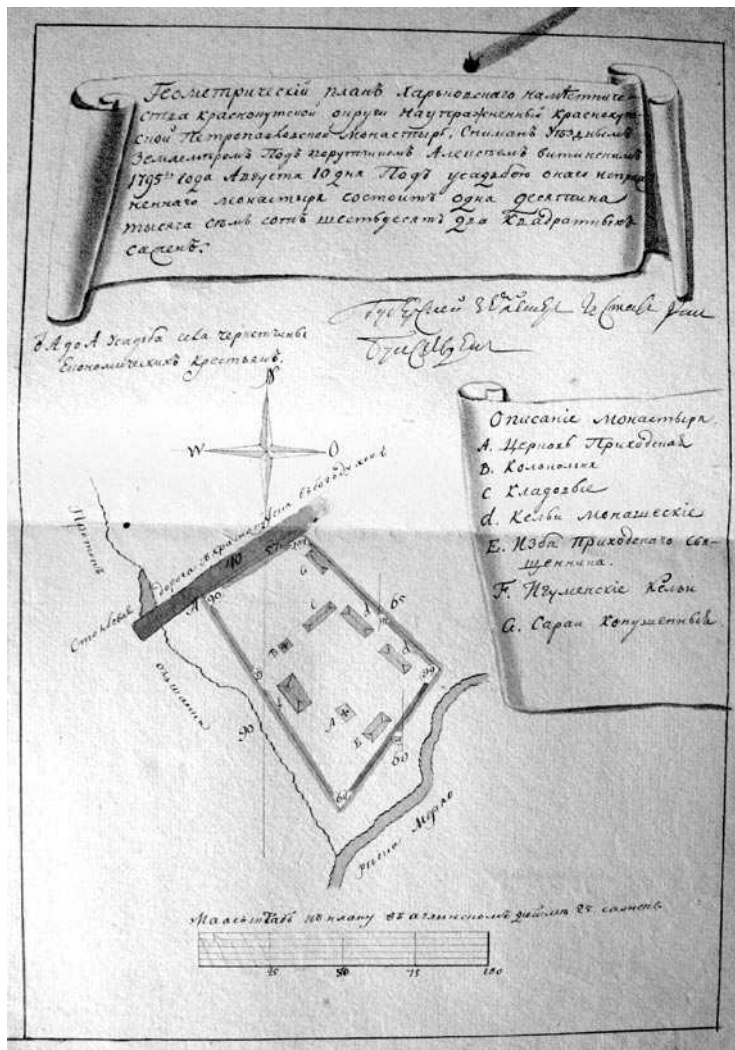 Геометрическій планъ Харьковскаго намѣстниче-
ства краснокутской округи Наупраженный Краснокут-
ской Петропавловской Монастырь, Сниманъ Уѣзднымъ
Землемѣромъ Подъ порутчикомъ Алексѣемъ
1795го года Августа 10 дня Подъ усадьбою онаго неупраж-
неннаго монастыря состоитъ одна десятина
тысяча семь сотъ шестьдесятъ два квадратныхъ
саженъ.
Губернской Землемѣръ
Ѿ А до А Усадьба села чернетчины
Економическихъ крестьянъ.
N
W
O
Описаніе монастыря.
А. Церковь Приходская
В. Колокольня
С Кладовые
d. Кельи монашескіе
Е. Изба Приходскаго свя-
щенника.
F. Игуменскіе Кельи
G. Сарай Конушенный
Столбовая дорога съ краснокутска въ Богодуховъ
Протокъ
110
А
90
G
C
d
65
B
d
90
F
90
A
E
60
60
река Мерло
Масштабъ къ плану въ аглинскомъ дюймѣ 25 саженъ
25
50
75
100